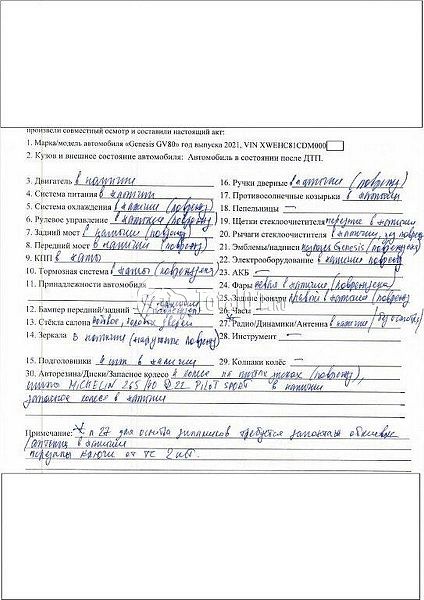 произвели совместный осмотр и составили настоящий акт:
1. Марка/модель автомобиля «Genesis GV80» год выпуска 2021, VIN XWEHC81CDM000
2. Кузов и внешнее состояние автомобиля: Автомобиль в состоянии после ДТП.
3. Двигатель в наличии
4. Система питания в наличии
5. Система охлаждения в наличии (поврежд)
6. Рулевое управление в наличии (поврежд)
7. Задний мост в наличии (поврежд)
8. Передний мост в наличии (поврежд)
9. КПП в налич
10. Тормозная система в налич (повреждена)
11. Принадлежности автомобиля
12. Бампер передний/задний
13. Стёкла салона
14. Зеркала в наличии (наружные поврежд)
15. Подголовники в наличии
16. Ручки дверные в наличии (поврежд)
17. Противосолнечные козырьки в наличии
18. Пепельницы —
19. Щетки стеклоочистителя передние в наличии
20. Рычаги стеклоочистителя в наличии, зад поврежд
21. Эмблемы/надписи Genesis
22. Электрооборудование в наличии поврежд
23. АКБ —
24. Фары левая в наличии (повреждена)
25. Задние фонари правый в наличии (поврежд)
26. Часы —
27. Радио/Динамики/Антенна в наличии
28. Инструмент —
29. Колпаки колёс —
30. Авторезина/Диски/Запасное колесо 4 колеса на литых дисках (поврежд),
шины MICHELIN 265/40 R22 PILOT SPORT в наличии
запасное колесо в наличии
Примечание: * п 27 для осмотра динамиков требуется демонтаж обшивок
/антенна в наличии
переданы ключи от тс 2 шт.